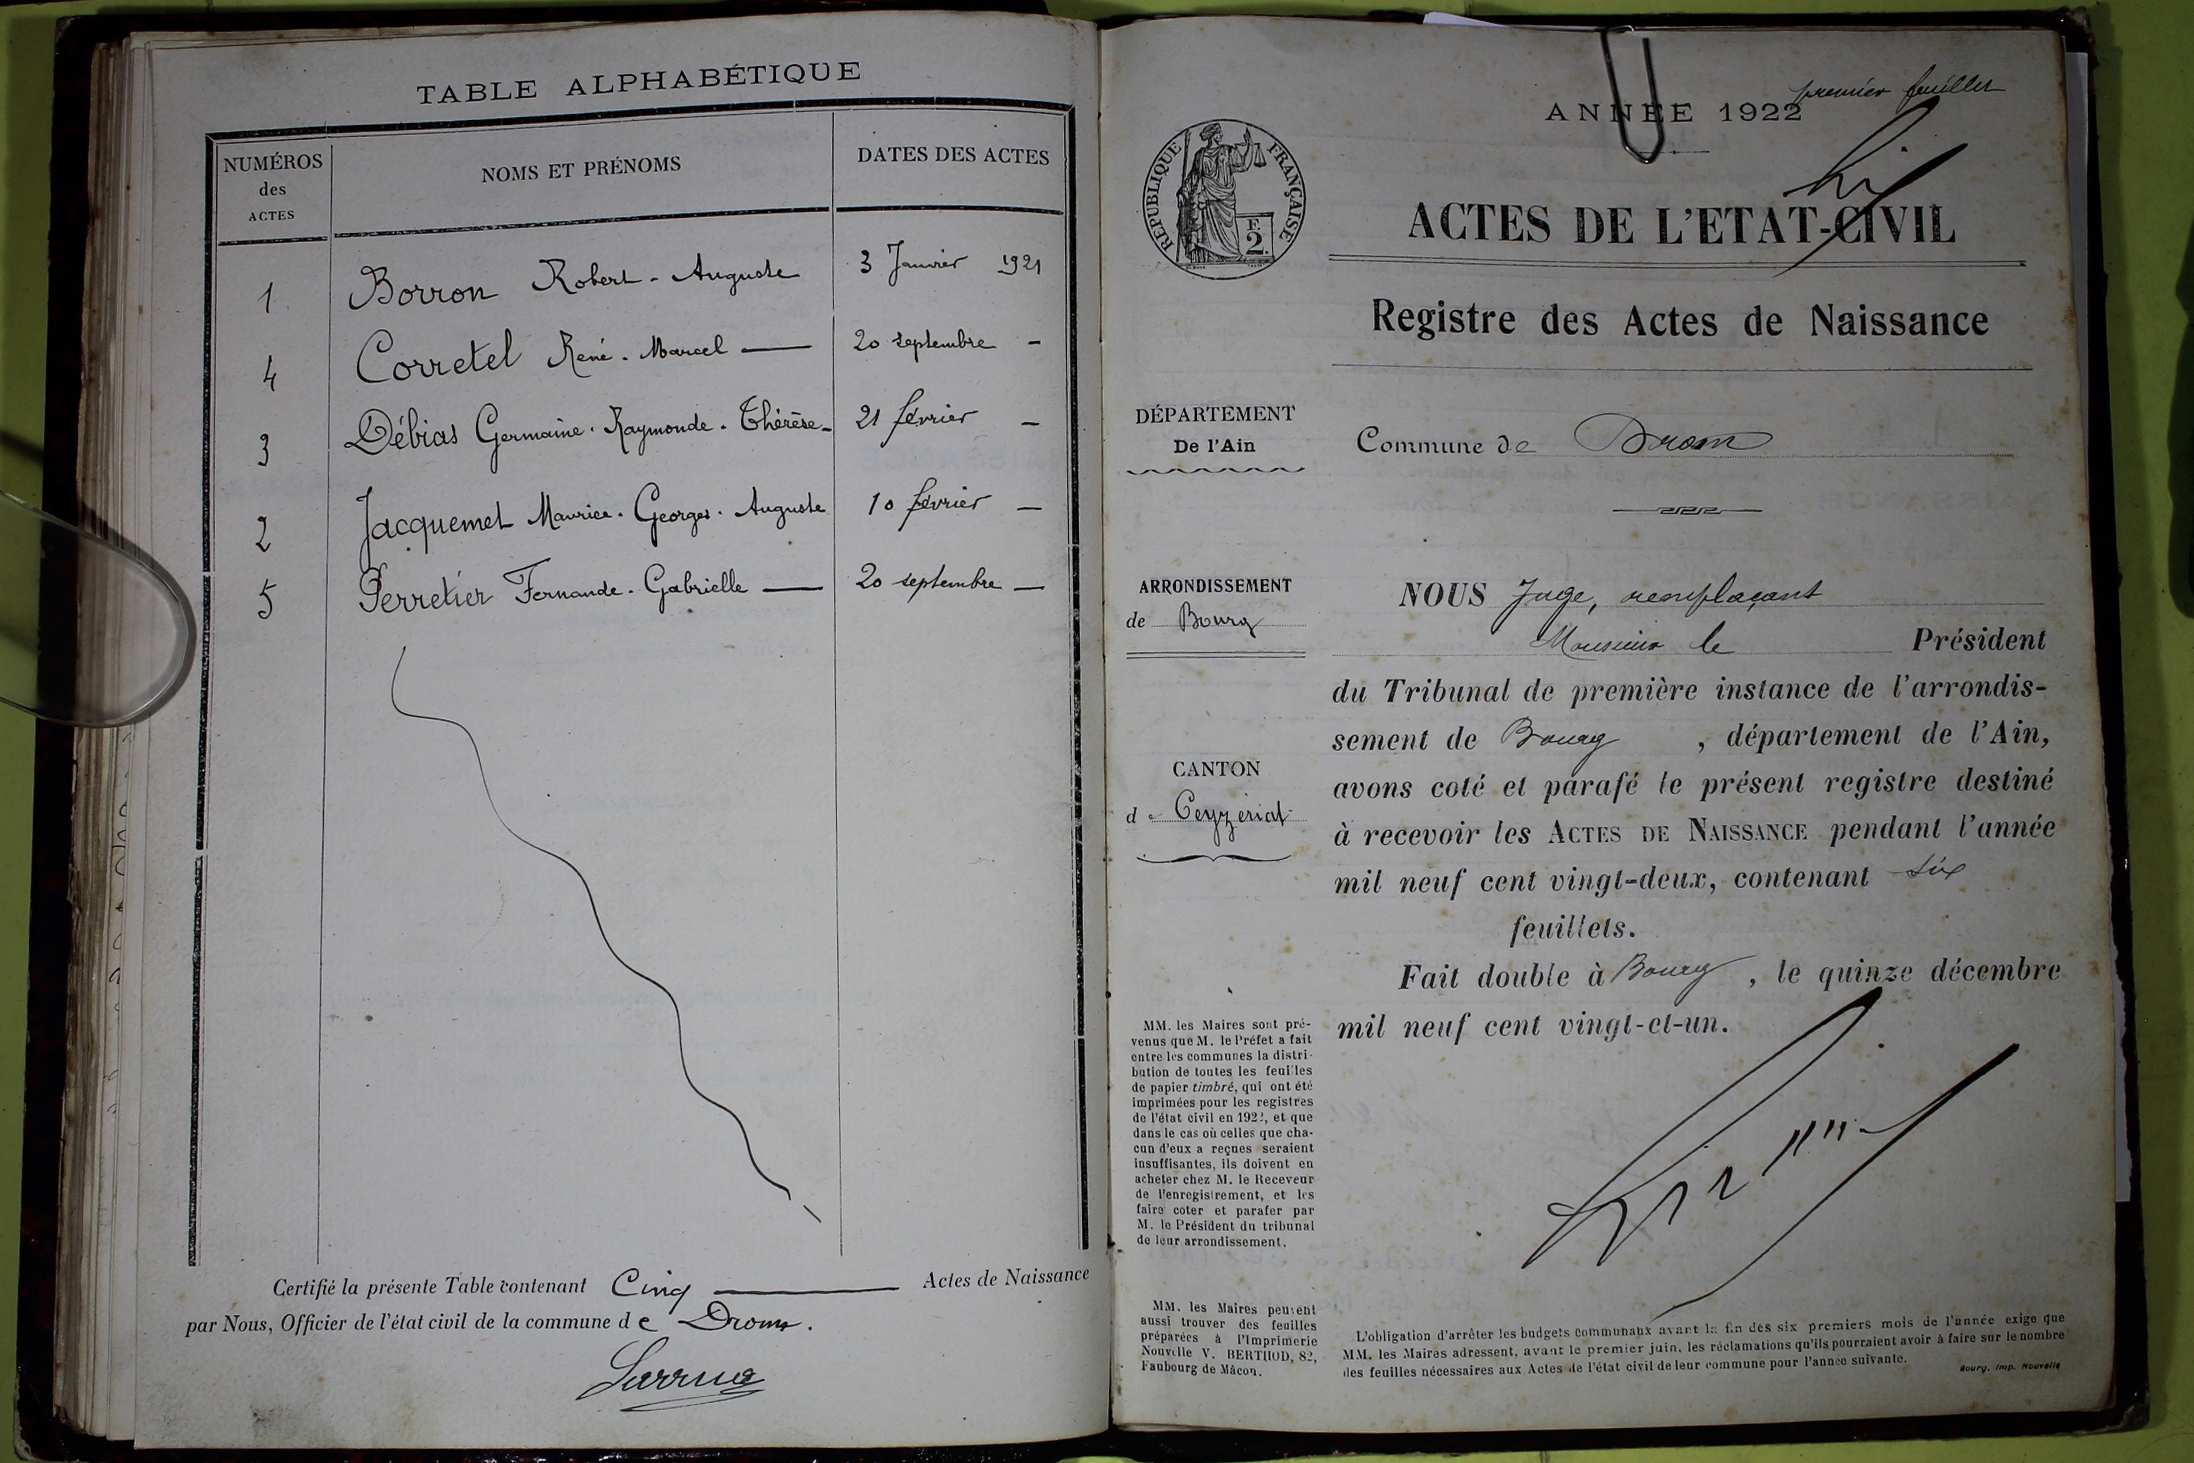 TABLE ALPHABÉTIQUE
NUMÉROS
des
ACTES
NOMS ET PRÉNOMS
DATES DES ACTES
1 Borron Robert - Auguste 3 Janvier 1921
4 Corretel René - Marcel — 20 septembre —
3 Débias Germaine - Raymonde - Thérèse - 21 février —
2 Jacquemet Maurice - Georges - Auguste 10 février —
5 Perretier Fernande - Gabrielle — 20 septembre —
Certifié la présente Table contenant Cinq — Actes de Naissance
par Nous, Officier de l'état civil de la commune de Drom.
premier feuillet
ANNÉE 1922
RÉPUBLIQUE FRANÇAISE
E
2
ACTES DE L'ETAT-CIVIL
Registre des Actes de Naissance
DÉPARTEMENT
De l'Ain
Commune de Drom
ARRONDISSEMENT
de Bourg
CANTON
de Ceyzériat
MM. les Maires sont pré-
venus que M. le Préfet a fait
entre les communes la distri-
bution de toutes les feuilles
de papier timbré, qui ont été
imprimées pour les registres
de l'état civil en 1922, et que
dans le cas où celles que cha-
cun d'eux a reçues seraient
insuffisantes, ils doivent en
acheter chez M. le Receveur
de l'enregistrement, et les
faire coter et parafer par
M. le Président du tribunal
de leur arrondissement.
MM. les Maires peuvent
aussi trouver des feuilles
préparées à l'Imprimerie
Nouvelle V. BERTHOD, 82,
Faubourg de Mâcon.
NOUS Juge, remplaçant
Monsieur le Président
du Tribunal de première instance de l'arrondis-
sement de Bourg , département de l'Ain,
avons coté et parafé le présent registre destiné
à recevoir les ACTES DE NAISSANCE pendant l'année
mil neuf cent vingt-deux, contenant six
feuillets.
Fait double à Bourg , le quinze décembre
mil neuf cent vingt-et-un.
L'obligation d'arrêter les budgets communaux avant la fin des six premiers mois de l'année exige que
MM. les Maires adressent, avant le premier juin, les réclamations qu'ils pourraient avoir à faire sur le nombre
des feuilles nécessaires aux Actes de l'état civil de leur commune pour l'année suivante.
Bourg, Imp. Nouvelle